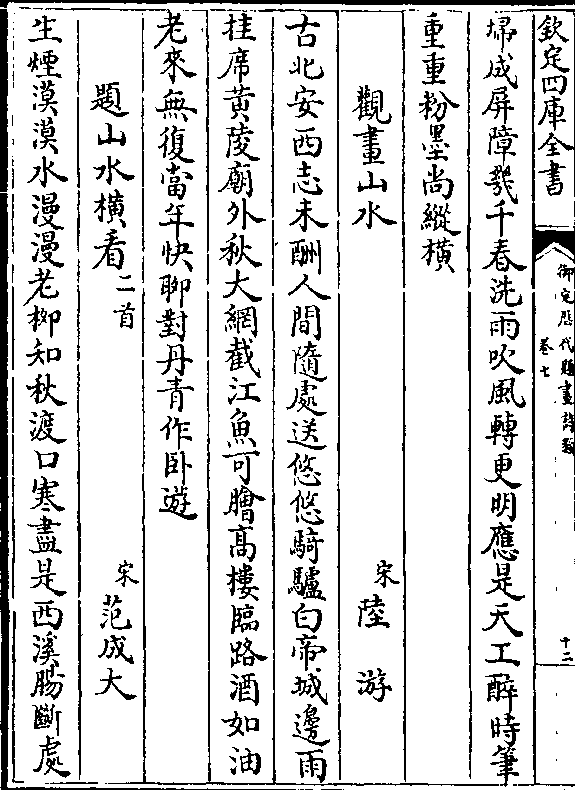 欽定四庫全書
御定歷代題畫詩類
卷七
十二
埽成屏障幾千春洗雨吹風轉更明應是天工醉時筆
重重粉墨尚縱横
觀畫山水
宋陸游
古北安西志未酬人間隨處送悠悠騎驢白帝城邊雨
挂席黄陵廟外秋大網截江魚可膾髙樓臨路酒如油
老來無復當年快聊對丹青作卧遊
題山水横看二首
宋范成大
生煙漠漠水漫漫老栁知秋渡口寒盡是西溪腸斷處